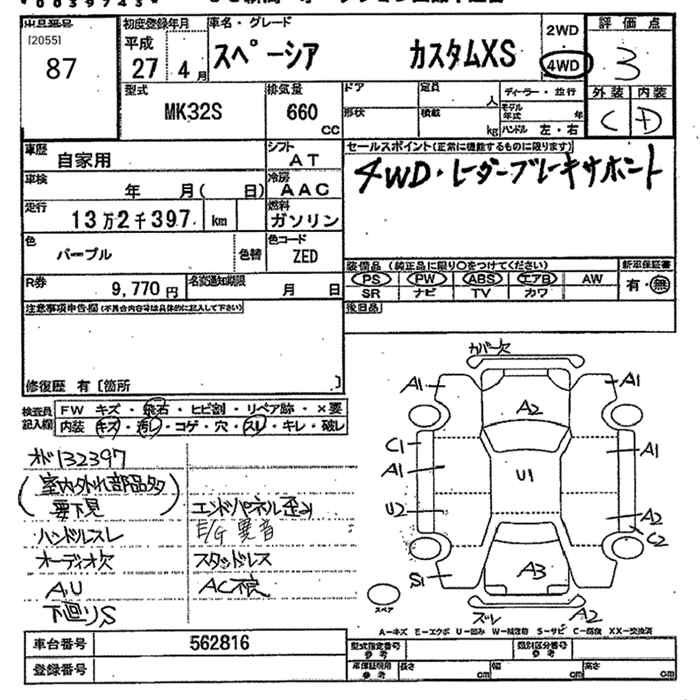 *0039743*
出品番号
[2055]
87
初度登録年月
平成
27年 4月
車名・グレード
スペーシア カスタムXS
2WD
4WD
評価点
3
外装 内装
C D
型式
MK32S
排気量
660 CC
ドア
形状
定員 人
積載 kg
ディーラー・並行
モデル年式 年
ハンドル 左・右
車歴
自家用
シフト
AT
車検
年 月( 日)
冷房
AAC
走行
13万2千397 km
燃料
ガソリン
色
パープル
色替
色コード
ZED
R券
9,770円
名変通知期限
月 日
セールスポイント(正常に機能するものに限ります)
4WD・レーダーブレーキサポート
装備品(純正品に限り○をつけてください)
新車保証書
PS PW ABS エアB AW
SR ナビ TV カワ
有・無
後日品
注意事項申告欄(不具合内容等は具体的に記入して下さい)
修復歴 有[箇所 ]
検査員記入欄
FW キズ・飛石・ヒビ割・リペア跡・×要
内装 キズ・汚レ・コゲ・穴・スレ・キレ・破レ
オド132397
(室内外れ部品多
要下見)
ハンドルスレ
オーディオ欠
A,U
下廻りS
エンドパネル歪み
E/G異音
スタッドレス
AC不良
カバー欠
A1 A1
A2
C1
A1
A1
U1
U2
A2
C2
S1
A3
スペア
ズレ
A2
A-キズ E-エクボ U-凹み W-補修跡 S-サビ C-腐食 XX-交換済
車台番号
562816
登録番号
型式指定番号
参考
類別区分番号
参考
車庫証明用
参考
長さ cm
幅 cm
高さ cm